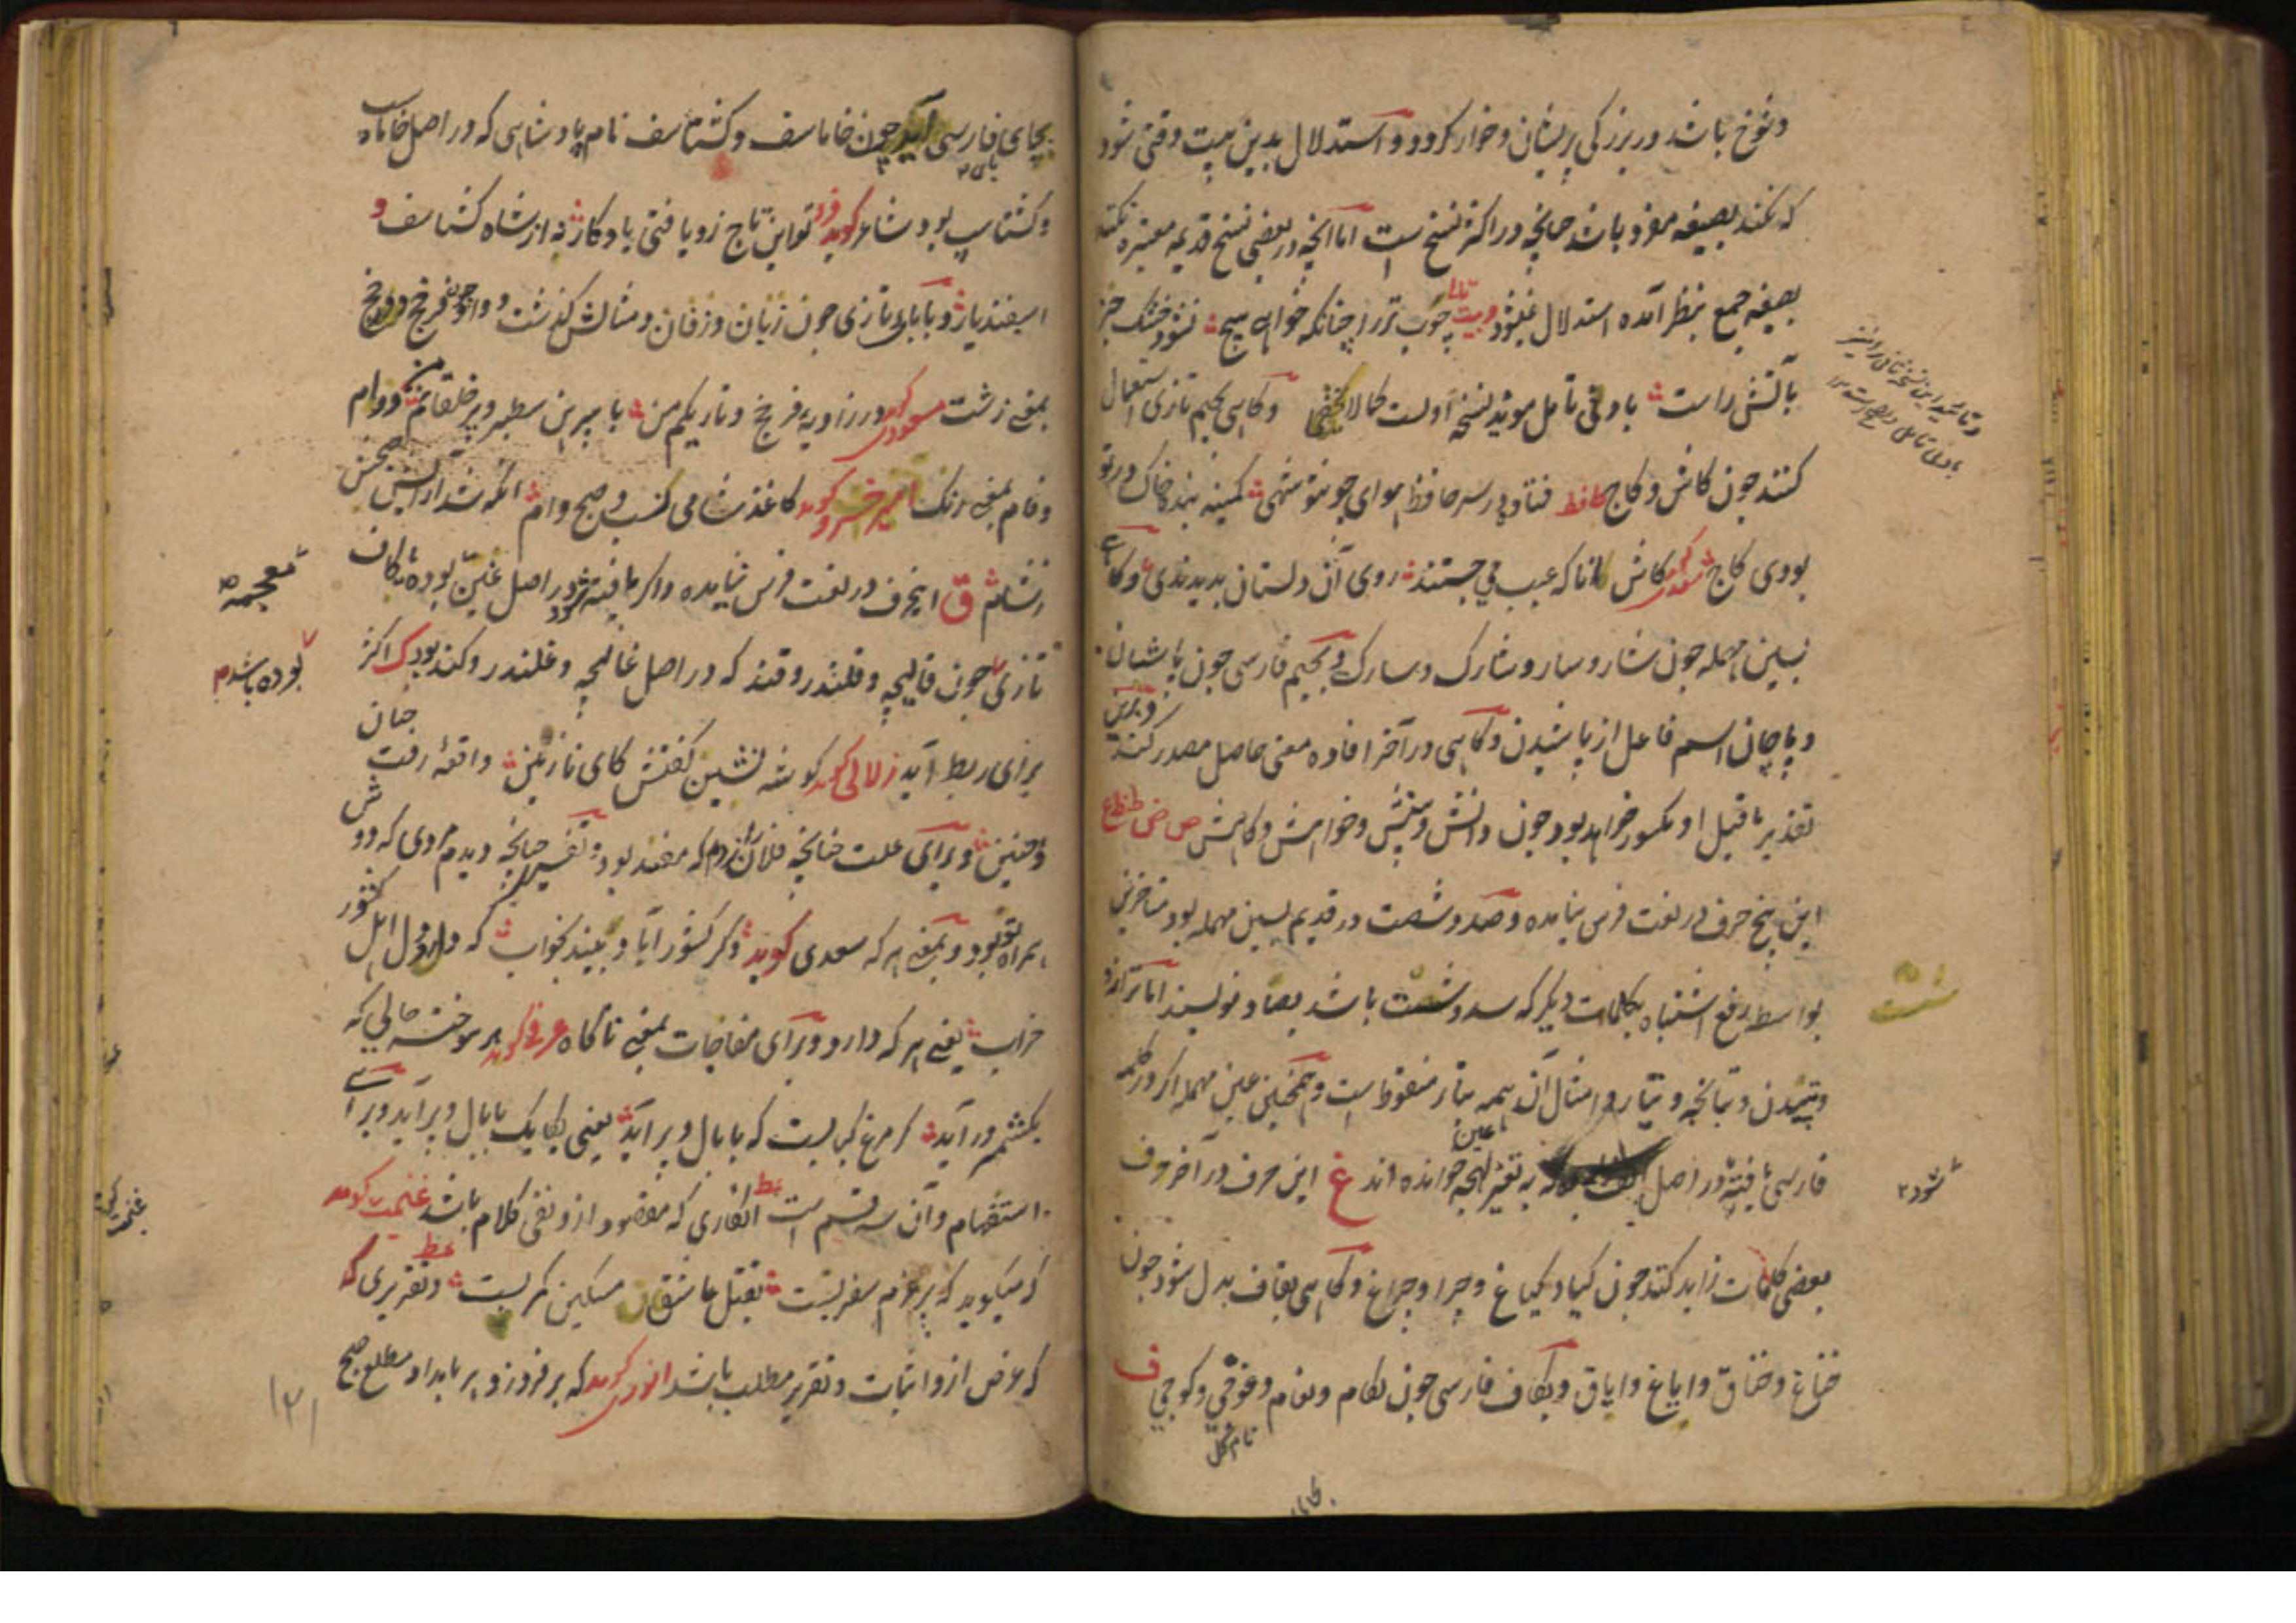 و شوخ باشد در بزرگی پریشان و خوار گردد و استدلال بدین بیت وقتی شود
که نکند بصیغه مفرد باشد چنانچه در اکثر نسخ است اما آنچه در بعضی نسخ قدیمه معتبره نکنند
بصیغه جمع بنظر آمده استدلال نمیشود و بیت چوب تر را چنانکه خواهی پیچ نشود خشک جز
بآتش راست با دنی تامل موید نسخه اولست کمالا یخفی و گاهی بجیم تازی استعمال
کنند چون کاش و کاج حافظ فتاده در سر حافظ هوای چون تو شهی کمینه بنده خاک در تو
بودی کاج سعدی گوید کاش آنانکه عیب می جستند روی آن دلستان بدیدندی و گاهے
بسین مهمله چون شار و سار و شارک و سارک و بجیم فارسی چون پاشان
و پاچان اسم فاعل از پاشیدن و گاهی در آخر افاده معنی حاصل مصدر کند و برین
تقدیر ماقبل او مکسور خواهد بود چون دانش و بینش و خواهش و کاهش ص ض ط ظ ع
این پنج حرف در لغت فرس نیامده و صد و شصت در قدیم بسین مهمله بود متاخرین
بواسطه رفع اشتباه بکلمات دیگر که سد و شست باشد بصاد نویسند اما ترازو
و تپیدن و تپانچه و تیار و امثال آن همه بتاء منقوطه است و همچنین عین مهمله اگر در کلمه
فارسی یافته شود در اصل به تغیر لهجه خوانده اند غ این حرف در آخر حروف
بعضی کلمات زاید کنند چون کیا و کیاغ و چرا و چراغ و گاهی بقاف بدل شود چون
ختاغ و ختاق و ایاغ و ایاق و بکاف فارسی چون لگام و لغام و غوچی و گوچی ف
بجای فارسی آید چون خاماسف و کشتاسف نام پادشاهی که در اصل خاماسپ
و کشتاسپ بود شاعر گوید تو این تاج زو یافتی یادگار نه از شاه کشتاسف و
اسفندیار و بابای تازی چون زبان و زفان و مثالش گذشت و واو چون فرنج و ورنج
بمعنی زشت مسعودی گوید در زاویه فرنج و تاریکم من با پیرهن سطبر و پر خلقانم من و وام
و فام بمعنی رنگ امیر خسرو گوید کاغذ شامی نسب و صبح وام آنکه شد آرایش
ق اینحرف در لغت فرس نیامده و اگر یافته شود در اصل غین بوده یا کاف
تازی چون قالیچه و قلندر و قند که در اصل غالیچه و غلندر و کند بود ک اکثر
برای ربط آید زلالی گوید گوشه نشین گفتش کای نازنین واقعهٔ رفت چنان
و چنین و برای علت چنانچه فلان را زدم که مفسد بود و تفسیر چنانچه دیدم مردی که دو
همراه او بود و بمعنی هر که سعدی گوید دگر کشور آباد بیند بخواب که دارد دل اهل کشور
خراب یعنی هر که دارد و برای مفاجات بمعنی ناگاه عرفی گوید هر سوخته جانی که
بکشمیر در آید گر مرغ کبابست که با بال و پر آید یعنی یکایک با بال و پر آید و برای
استفهام و آن سه قسم است انکاری که مقصود ازو نفی کلام باشد غنیمت گوید
که میگوید که بر عزم سفر بست بقتل عاشقان مسکین کمر بست و تقریری که
که غرض ازو اثبات و تقریر مطلب باشد انوری گوید که بر فروزد هر بامداد مطلع صبح
معجمه
بوده باشد
شود
۱۲۱